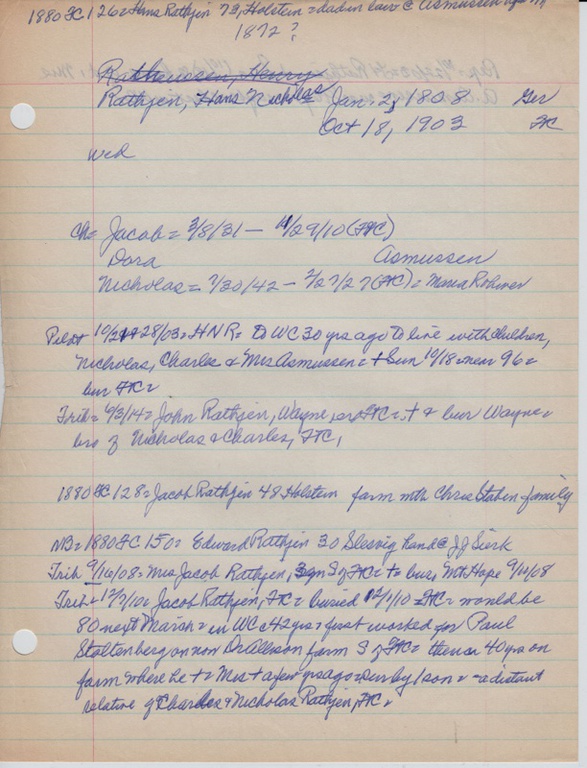 1880 FC 126 = Hans Rathjen 73, Holstein = dad in law @ Asmussen
1872?
Rathmussen, Henry
Rathjen, Hans Nicholas Jan. 2, 1808 Ger
Oct 18, 1903 FC
wid
Ch = Jacob = 3/8/31 — 11/29/10 (FC)
Dora Asmussen
Nicholas = 7/30/42 — 2/27/27 (FC) = Maria Rohwer
Pilot 10/28/03 = HNR = to WC 30 yrs ago to live with children,
Nicholas, Charles & Mrs Asmussen = + Sun 10/18 = near 96 =
bur FC =
Trib = 4/3/14 = John Rathjen, Wayne, FC = + & bur Wayne =
bro of Nicholas & Charles, FC,
1880 FC 128 = Jacob Rathjen 48 Holstein farm with Chris family
NB = 1880 FC 150 = Edward Rathjen 30 Slesvig hand @ JJ Sierk
Trib 9/16/08 = Mrs Jacob Rathjen, S of FC = + = bur, Mt Hope 9/11/08
Trib = 12/7/10 = Jacob Rathjen, FC = buried 12/1/10 = FC = would be
80 next March = in WC 42 yrs = first worked for Paul
Stoltenberg on now Dr Allison farm S of FC = then on 40 yrs on
farm where he + = Mrs + a few yrs ago = sur by 1 son = = a distant
relative of Charles & Nicholas Rathjen, FC =